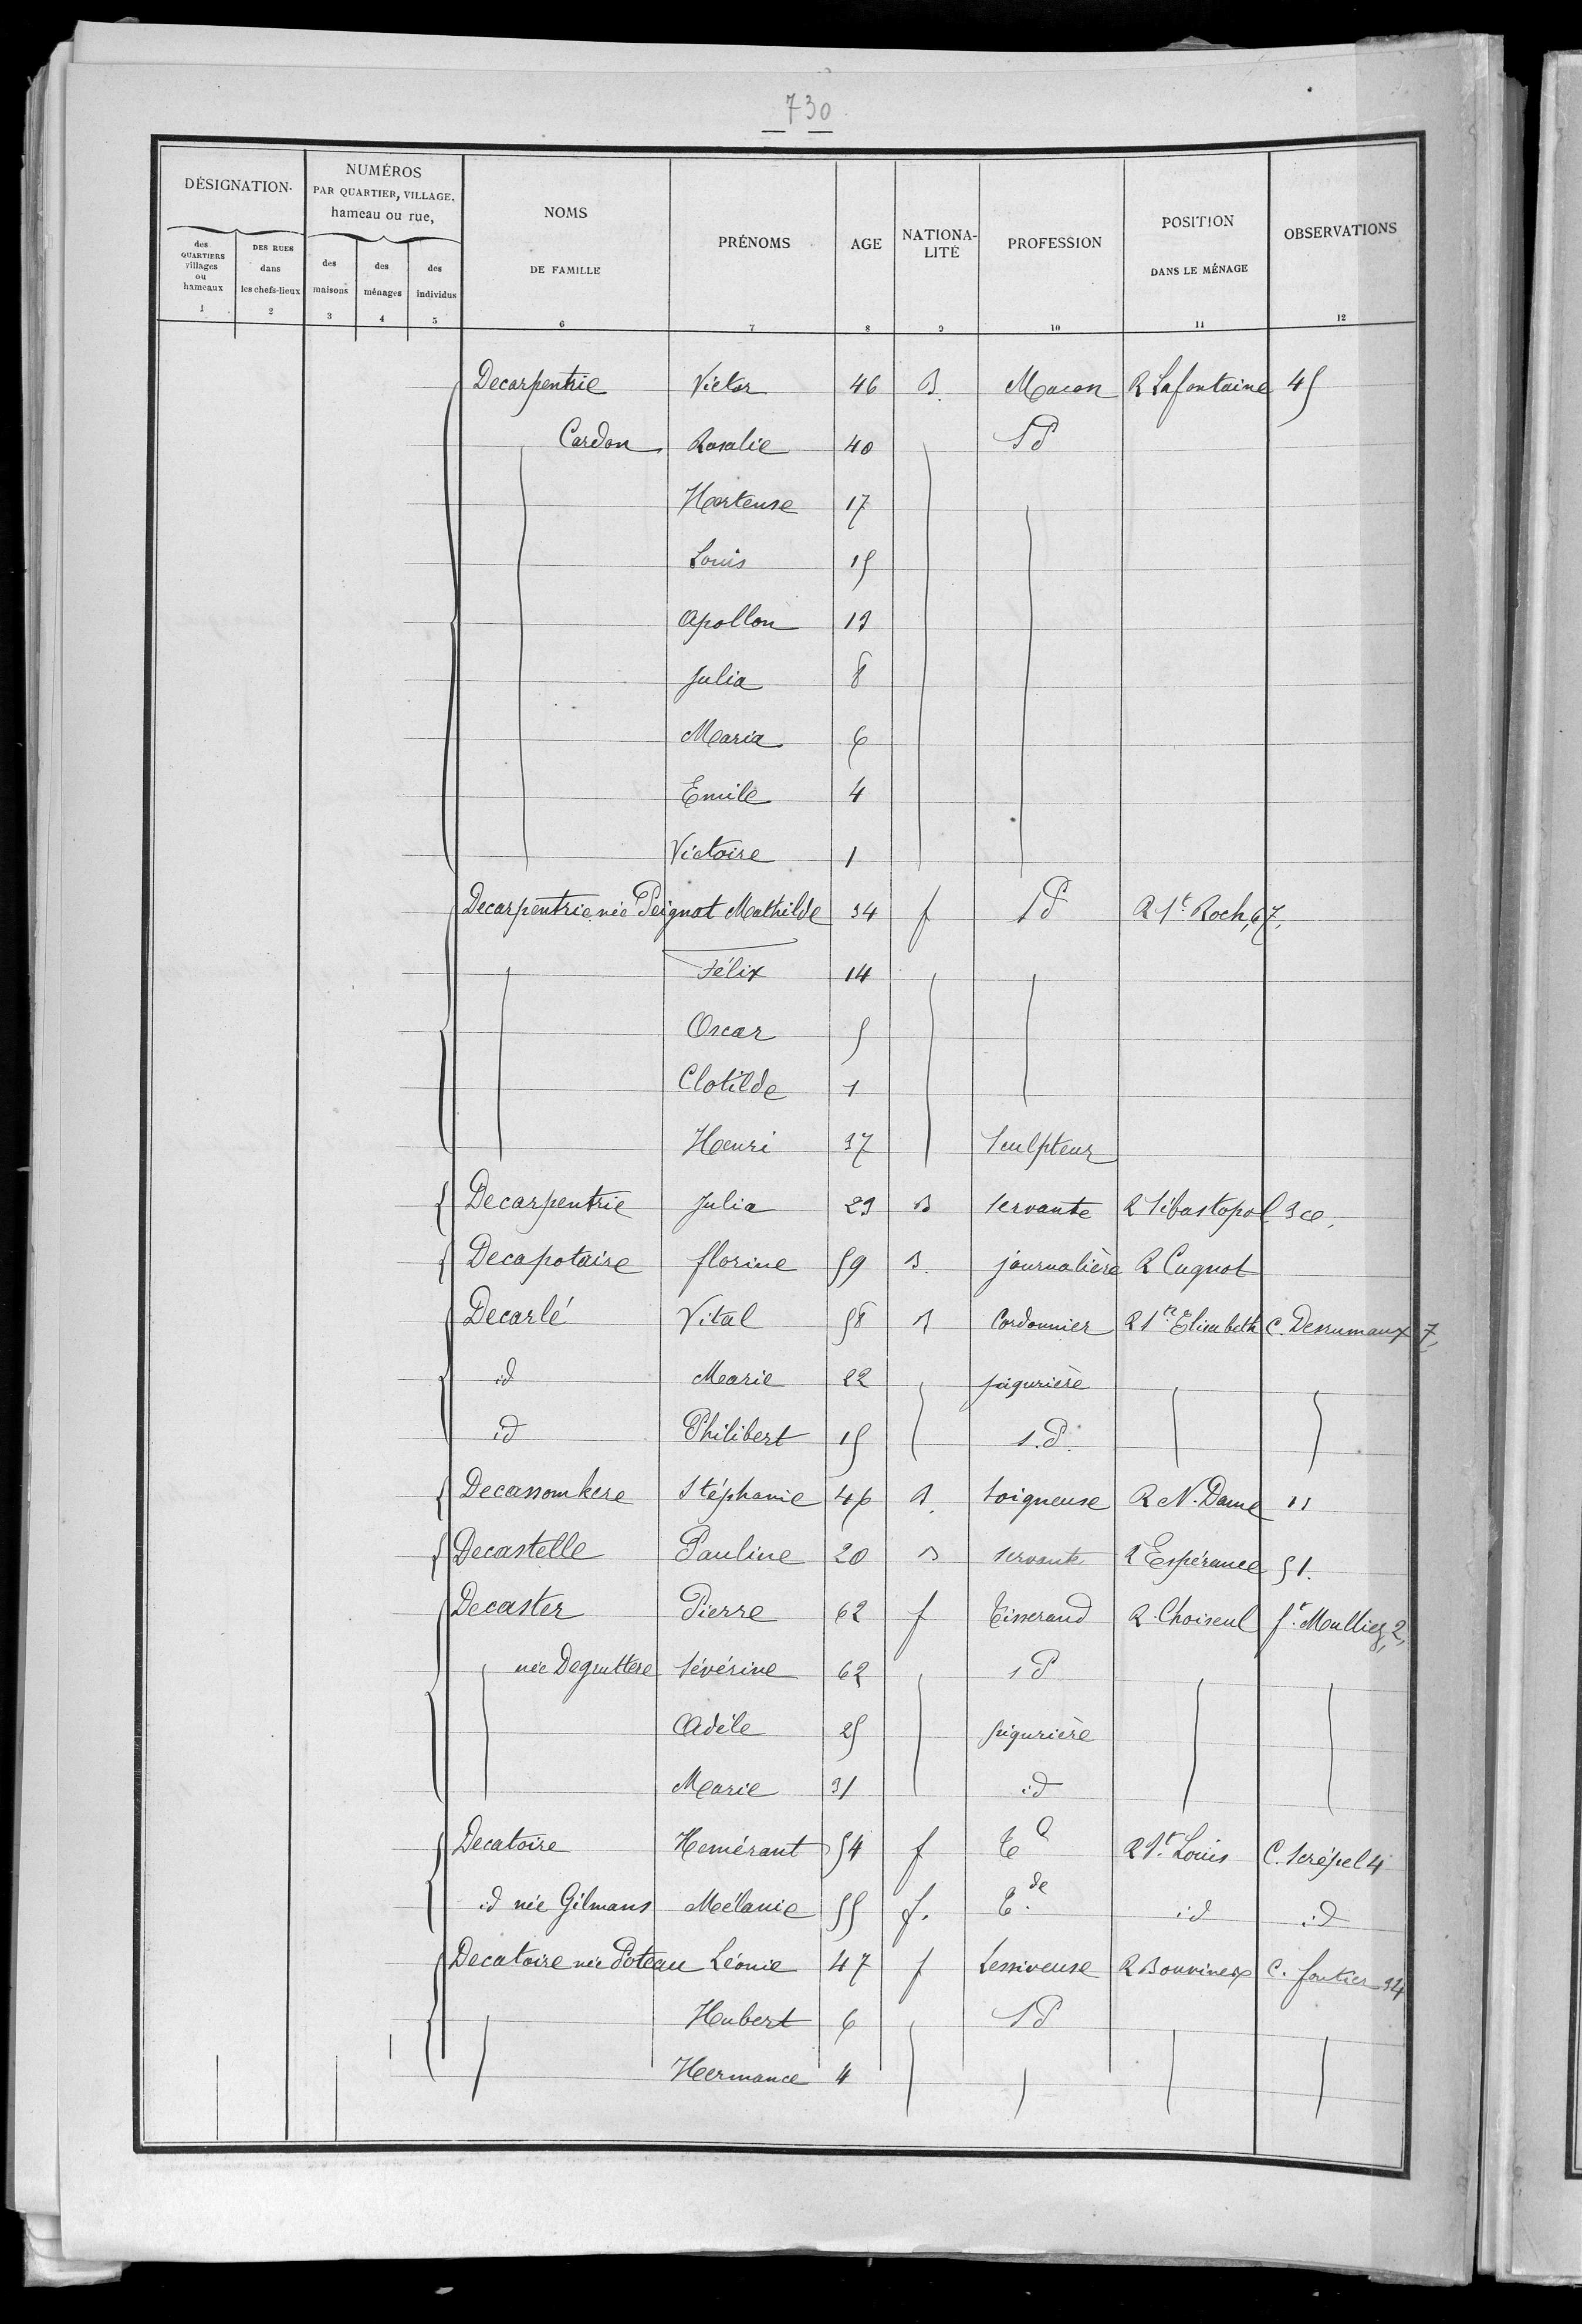 730
DÉSIGNATION.
NUMÉROS
PAR QUARTIER, VILLAGE.
hameau ou rue,
NOMS
DE FAMILLE
PRÉNOMS
AGE
NATIONA-
LITÉ
PROFESSION
POSITION
DANS LE MÉNAGE
OBSERVATIONS
des
QUARTIERS
villages
ou
hameaux
DES RUES
dans
les chefs-lieux
des
maisons
des
ménages
des
individus
1 2 3 4 5 6 7 8 9 10 11 12
Decarpentrie Victor 46 B. Macon R Lafontaine 45
Cardon Rosalie 40 SP
Hortense 17
Louis 15
Apollon 13
Julia 8
Maria 6
Emile 4
Victoire 1
Decarpentrie née Peignot Mathilde 34 f SP R St Roch, 67,
Félix 14
Oscar 5
Clotilde 1
Henri 37 Sculpteur
Decarpentrie Julia 23 B servante R Sébastopol
Decapotaire florine 59 B. journalière R Cugnot
Decarlé Vital 58 B Cordonnier R Ste Elisabeth C. Desrumaux 7,
id Marie 22 piqurière
id Philibert 15 S.P.
Decassomkere Stéphanie 46 B. Soigneuse R N. Dame 11
Decastelle Pauline 20 B servante R Espérance 51.
Decaster Pierre 62 f Tisserand R. Choiseul ft. Mulliez, 2,
née Degruttere Sévérine 62 SP
Adèle 25 piqurière
Marie 31 id
Decatoire Hemérant 54 f Td R St. Louis C. Scrépel 4
id née Gilmans Mélanie 55 f. T.de id id
Decatoire née Poteau Léonie 47 f Lessiveuse R Bouvines C. fontier 34
Hubert 6 SP
Hermance 4